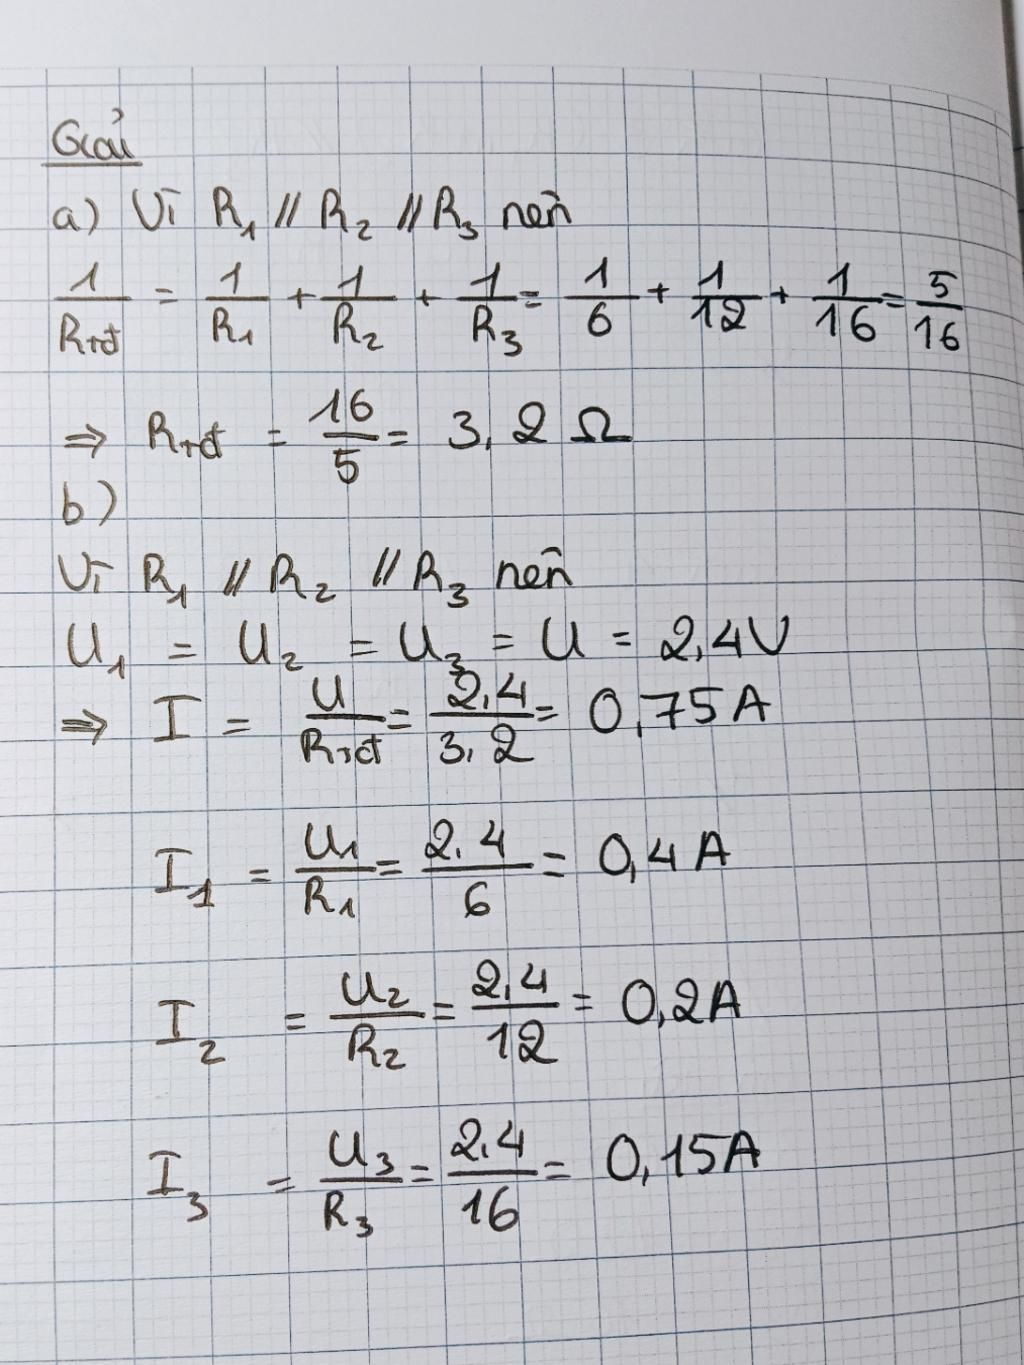 Giải
a) Vì R₁ // R₂ // R₃ nên
1/Rtđ = 1/R₁ + 1/R₂ + 1/R₃ = 1/6 + 1/12 + 1/16 = 5/16
⇒ Rtđ = 16/5 = 3,2 Ω
b)
Vì R₁ // R₂ // R₃ nên
U₁ = U₂ = U₃ = U = 2,4V
⇒ I = U/Rtđ = 2,4/3,2 = 0,75A
I₁ = U₁/R₁ = 2,4/6 = 0,4A
I₂ = U₂/R₂ = 2,4/12 = 0,2A
I₃ = U₃/R₃ = 2,4/16 = 0,15A